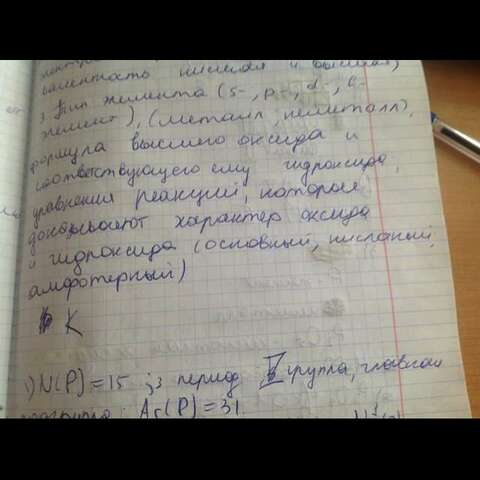 валентность низшая и высшая)
3 Тип элемента (s-, p-, d-, f-
элемент), (металл, неметалл),
формула высшего оксида и
соответствующего ему гидроксида,
уравнения реакций, которые
доказывают характер оксида
и гидроксида (основный, кислотный,
амфотерный)
K
1) N(P)=15 ; 3 период V группа, главная
подгруппа; Ar(P)=31